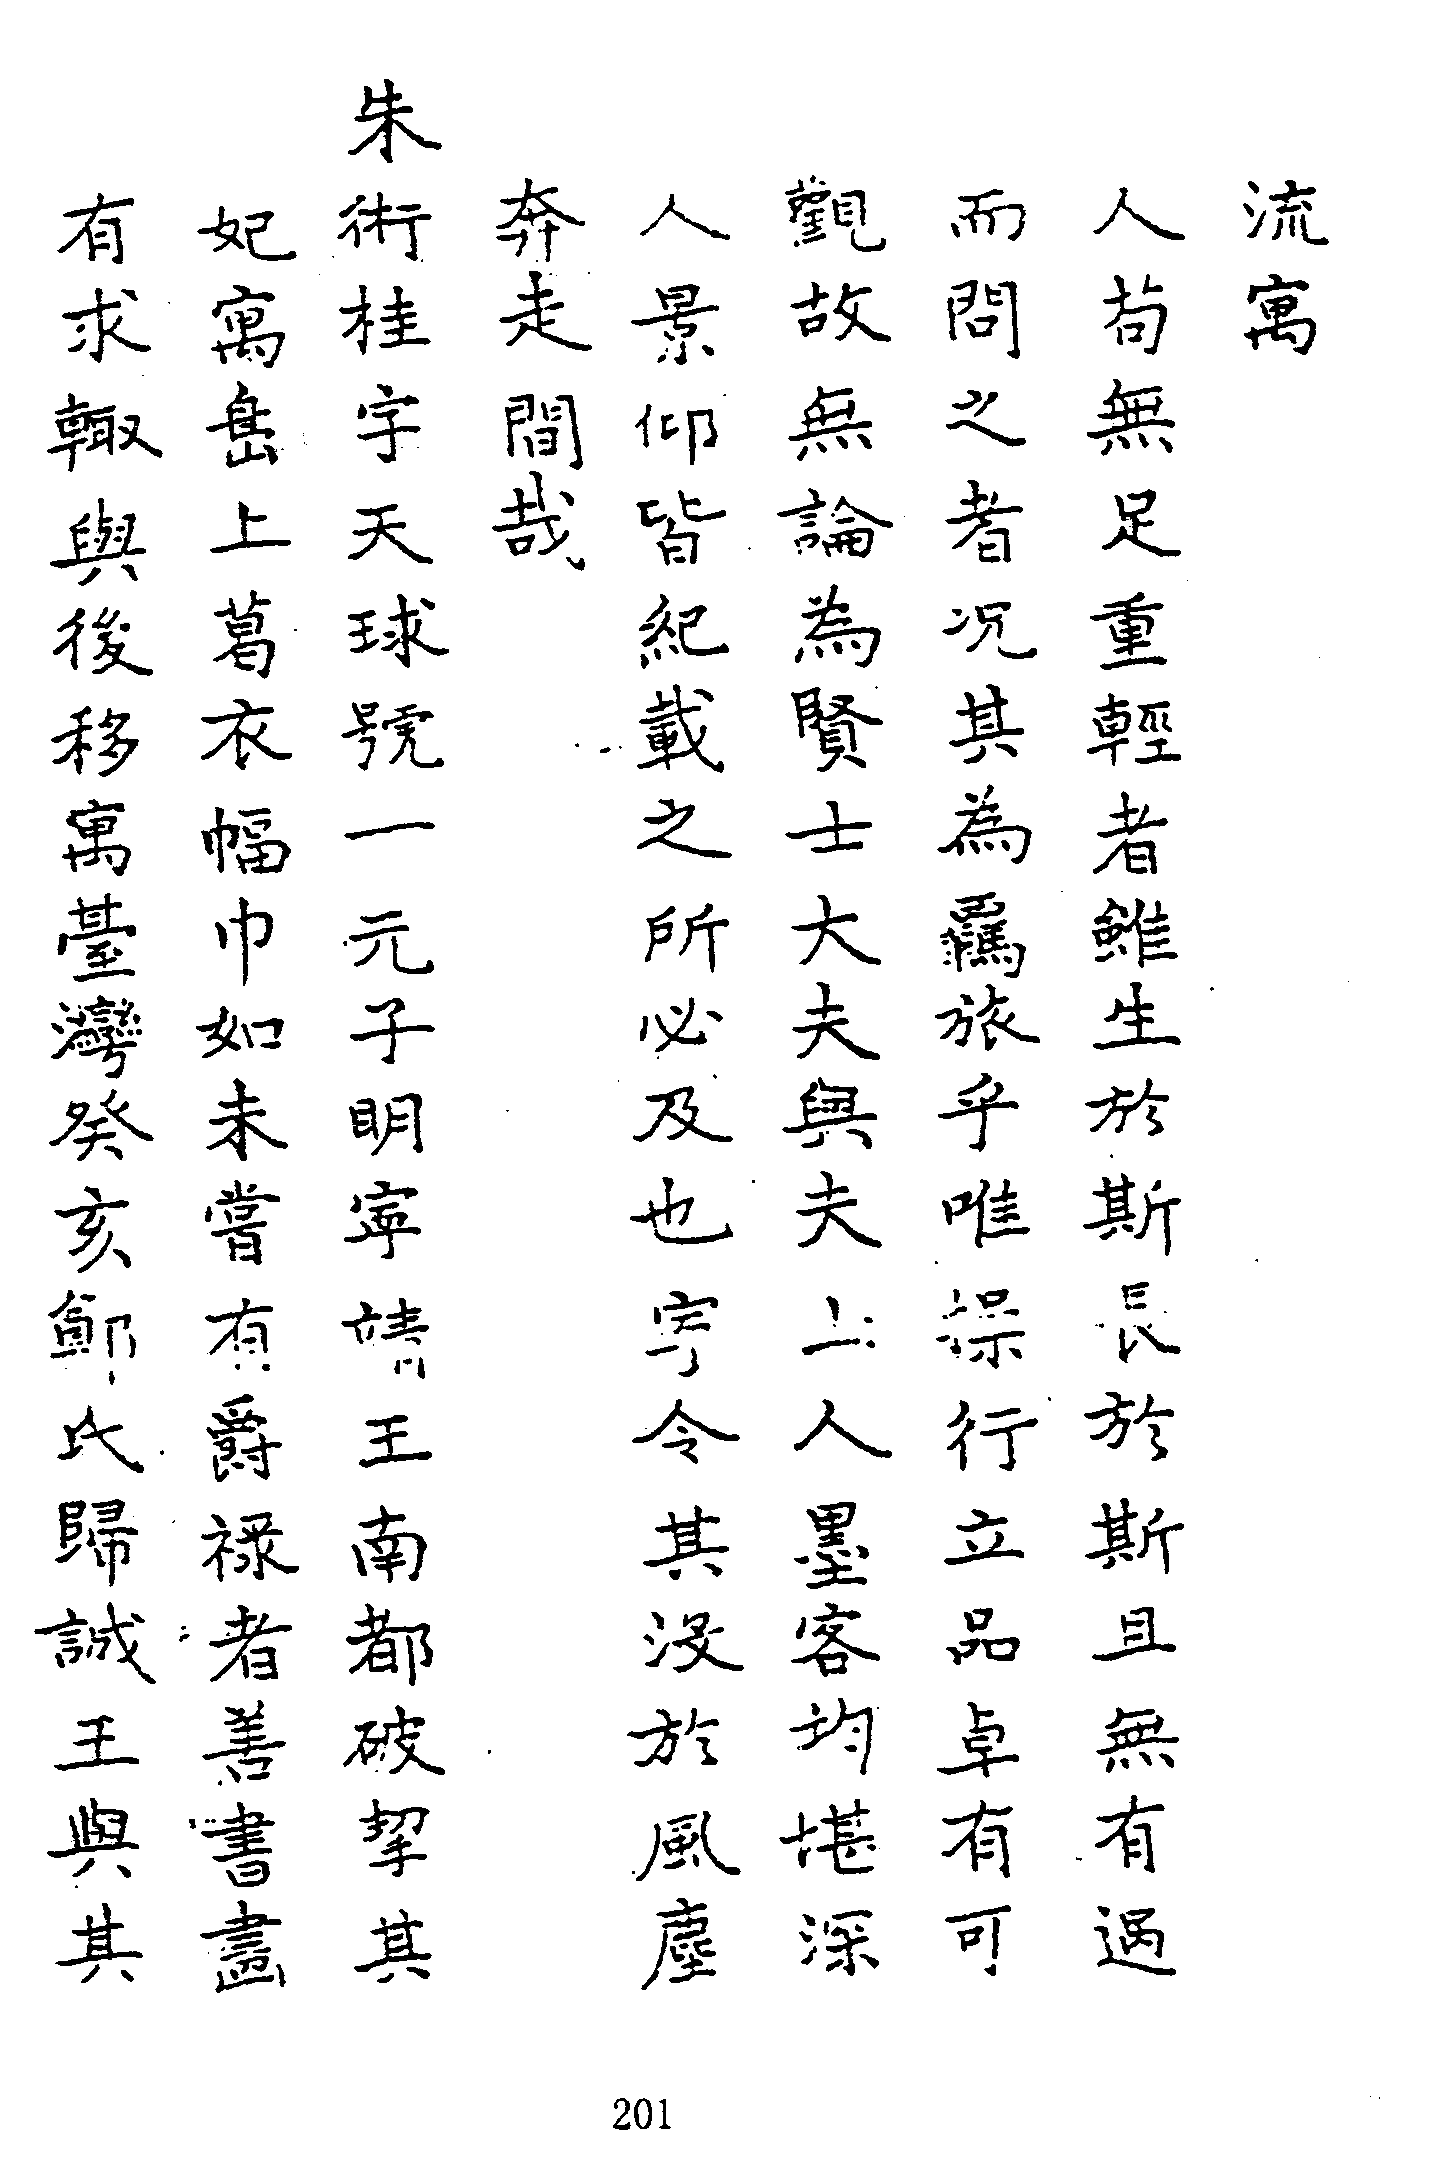 流寓
人茍無足重輕者雖生於斯長於斯且無有過
而問之者况其為羈旅乎唯操行立品卓有可
觀故無論為賢士大夫與夫上人墨客均堪深
人景仰皆紀載之所必及也寕令其沒於風塵
奔走間哉
朱術桂字天球號一元子明寧靖王南都破挈其
妃寓島上葛衣幅巾如未嘗有爵禄者善書畫
有求輙與後移寓臺灣癸亥鄭氏歸誠王與其
201